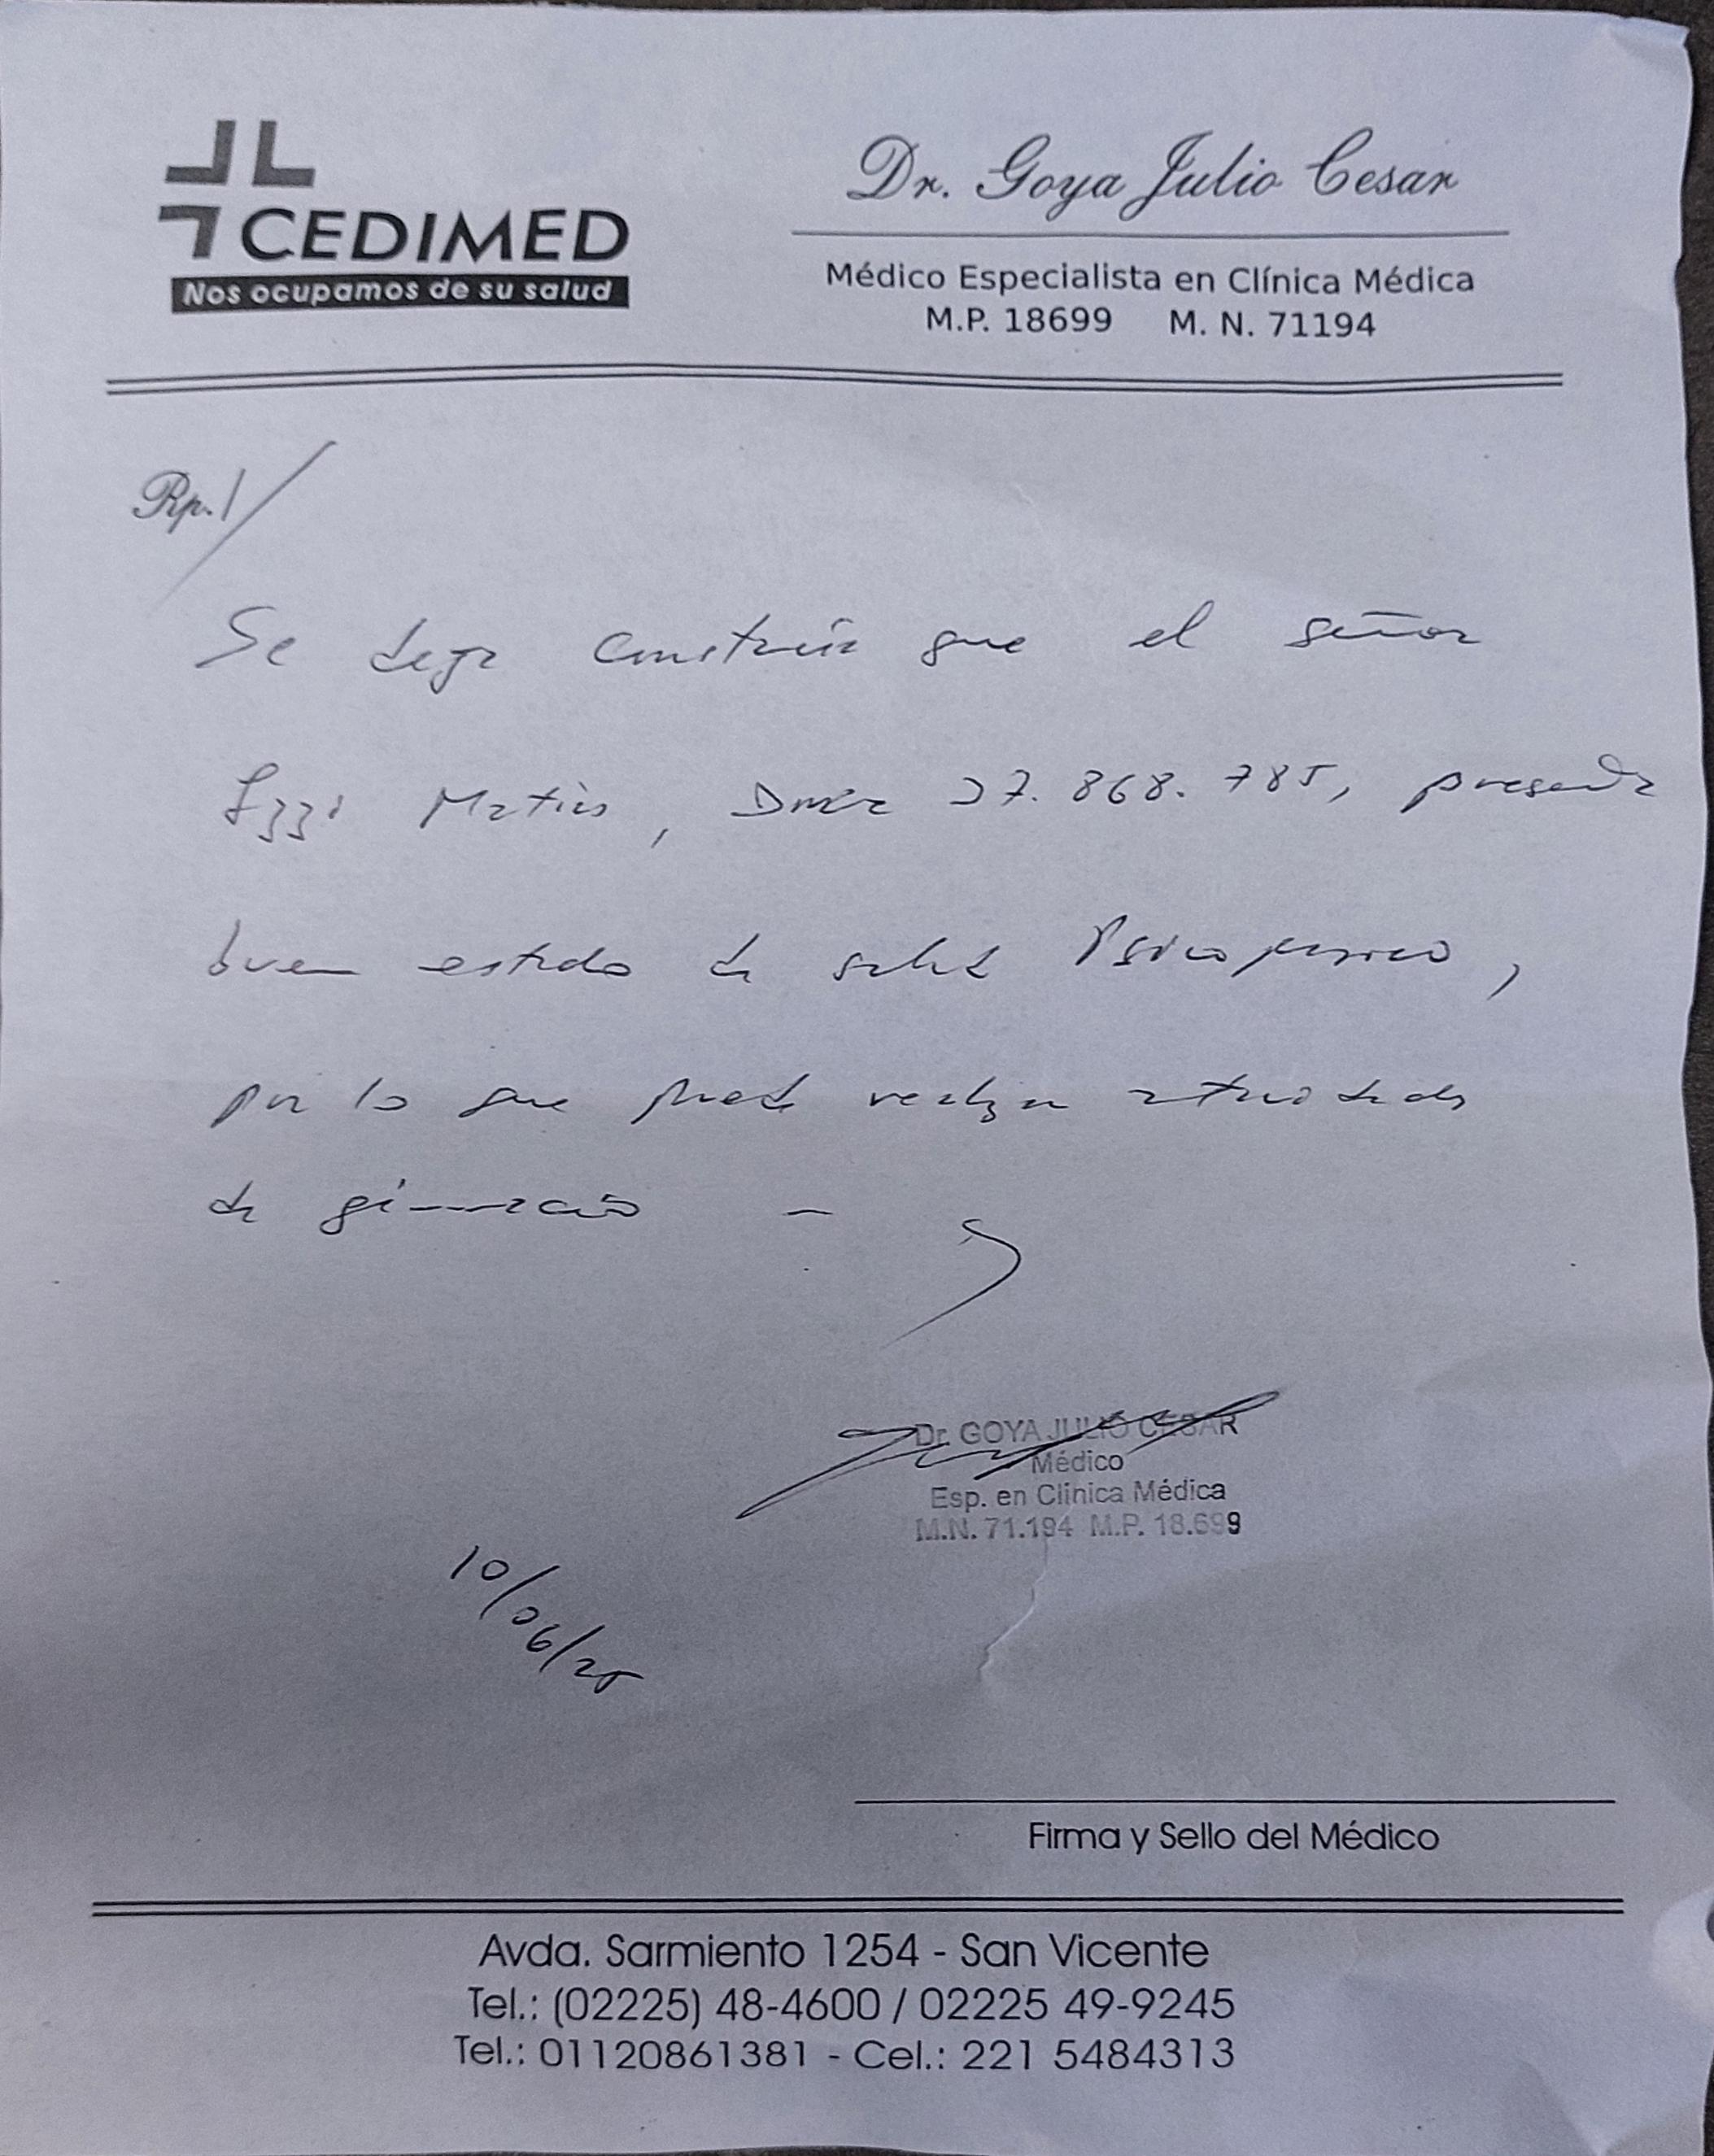 CEDIMED
Nos ocupamos de su salud
Dr. Goya Julio Cesar
Médico Especialista en Clínica Médica
M.P. 18699 M. N. 71194
Rp./
Se deja constancia que el señor
Matías, 27.868.785, presenta
buen estado de salud Psicofísico,
por lo que puede realizar actividades
de gimnasio -
Dr. GOYA JULIO CESAR
Médico
Esp. en Clínica Médica
M.N. 71.194 M.P. 18.699
10/06/25
Firma y Sello del Médico
Avda. Sarmiento 1254 - San Vicente
Tel.: (02225) 48-4600 / 02225 49-9245
Tel.: 01120861381 - Cel.: 221 5484313